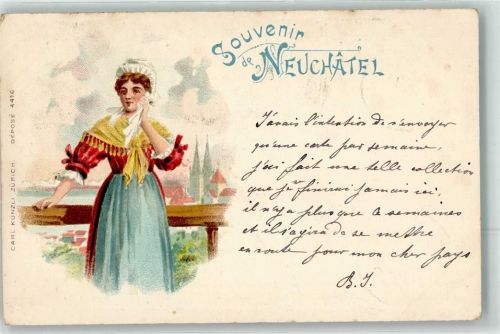 Souvenir
de NEUCHÂTEL
J'avais l'intention de n'envoyer
qu'une carte par semaine,
j'ai fait une telle collection
que je finirai jamais ici,
il n'y a plus que 2 semaines
et il s'agira de se mettre
en route pour mon cher pays
B. J.
CARL KÜNZLI, ZÜRICH. DÉPOSÉ 4416